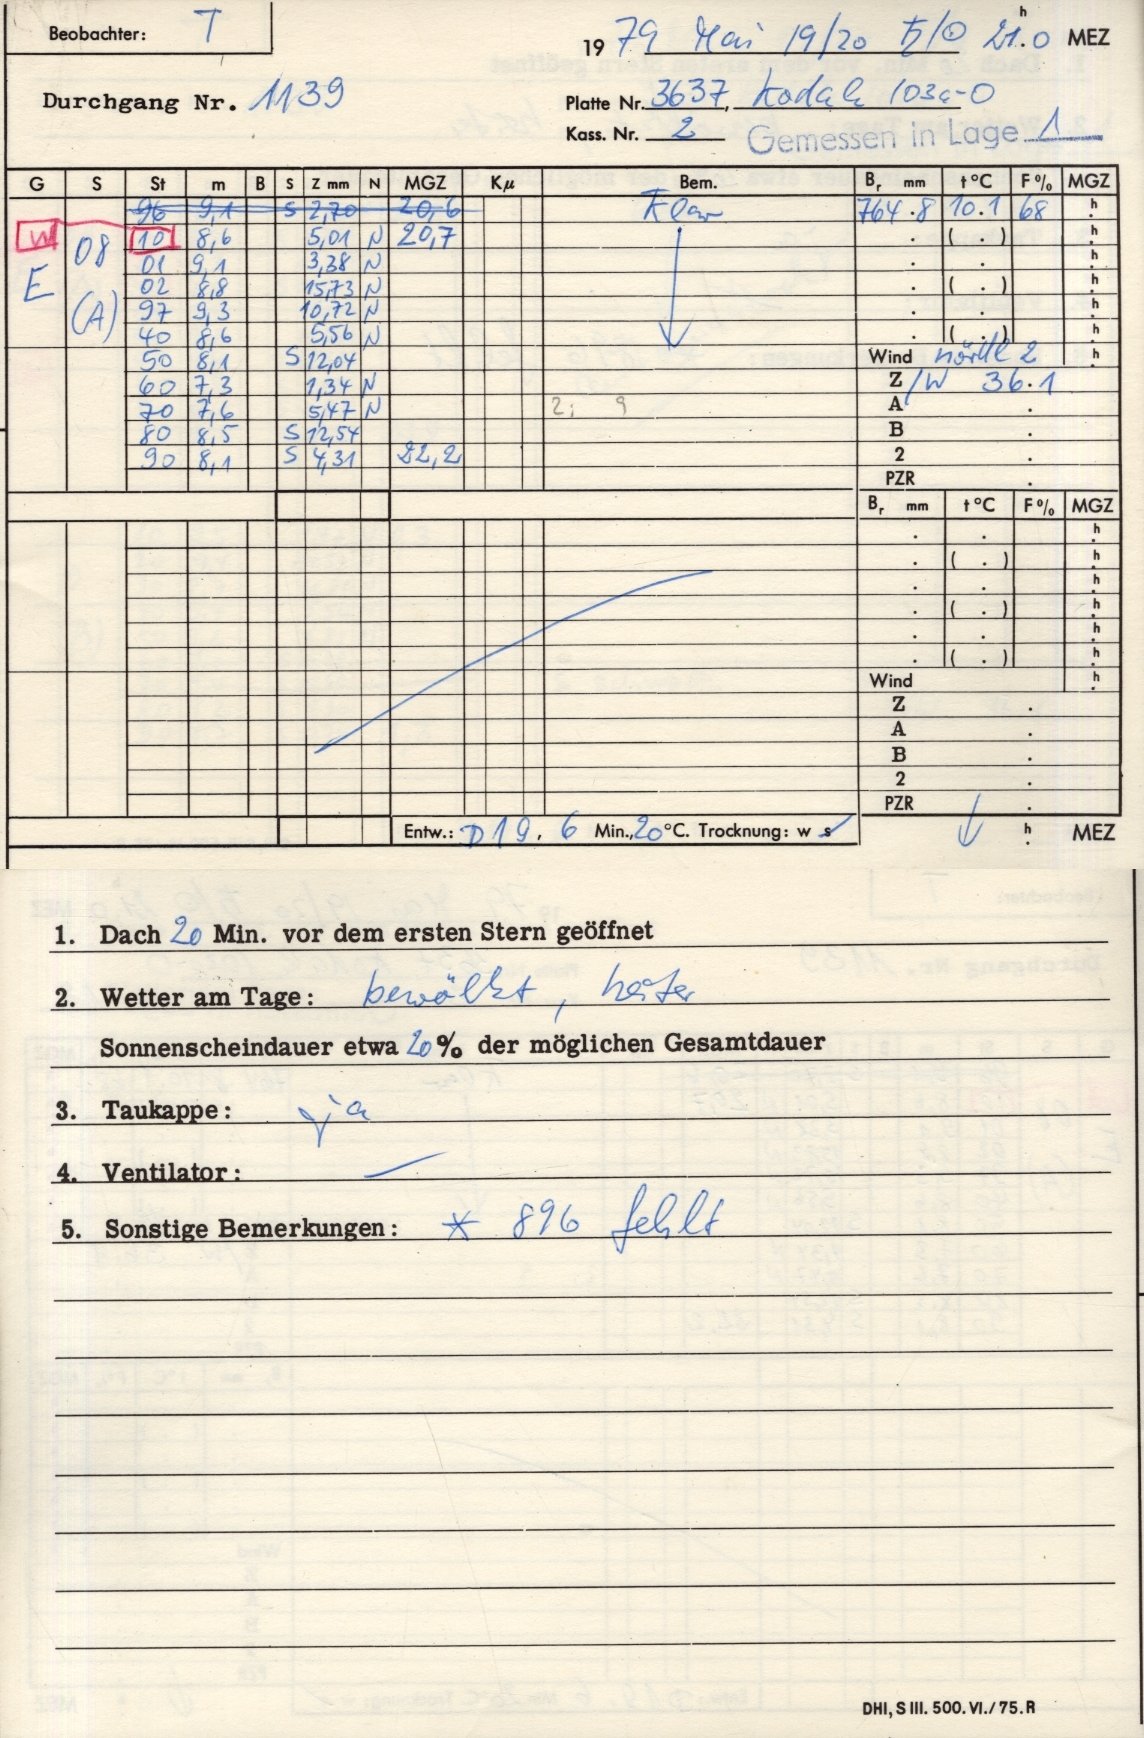 Beobachter: T
1979 Mai 19/20 ♄/☉ 21.0 h MEZ
Durchgang Nr. 1139
Platte Nr. 3637, Kodak 103a-O
Kass. Nr. 2 Gemessen in Lage 1
G S St m B S Z mm N MGZ Kµ Bem. Br mm t°C F% MGZ
96 9,1 S 2,70 20,6 Klar 764.8 10.1 68 h
W 08 10 8,6 5,01 N 20,7 . ( . ) h
E 01 9,1 3,38 N . . h
02 8,8 15,73 N . ( . ) h
(A) 97 9,3 10,72 N . . h
40 8,6 5,56 N . ( . ) h
50 8,1 S 12,04 Wind nördl 2 h
60 7,3 1,34 N Z /W 36.1
70 7,6 5,47 N 2; 9 A .
80 8,5 S 12,54 B .
90 8,1 S 4,31 22,2 2 .
PZR .
Br mm t°C F% MGZ
. . h
. ( . ) h
. . h
. ( . ) h
. . h
. ( . ) h
Wind h
Z .
A .
B .
2 .
PZR .
Entw.: D19, 6 Min., 20°C. Trocknung: w s h MEZ
1. Dach 20 Min. vor dem ersten Stern geöffnet
2. Wetter am Tage: bewölkt, heiter
Sonnenscheindauer etwa 20% der möglichen Gesamtdauer
3. Taukappe: ja
4. Ventilator: —
5. Sonstige Bemerkungen: * 896 fehlt
DHI, S III. 500. VI./75. R